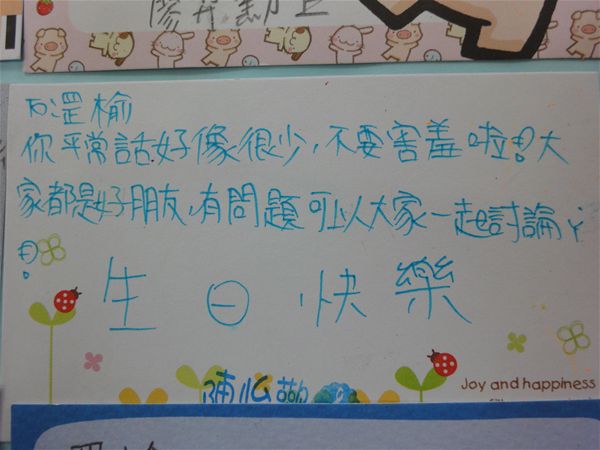 罡榆
你平常話好像很少,不要害羞啦!大
家都是好朋友,有問題可以大家一起討論ㄚ
!
生日快樂
Joy and happiness